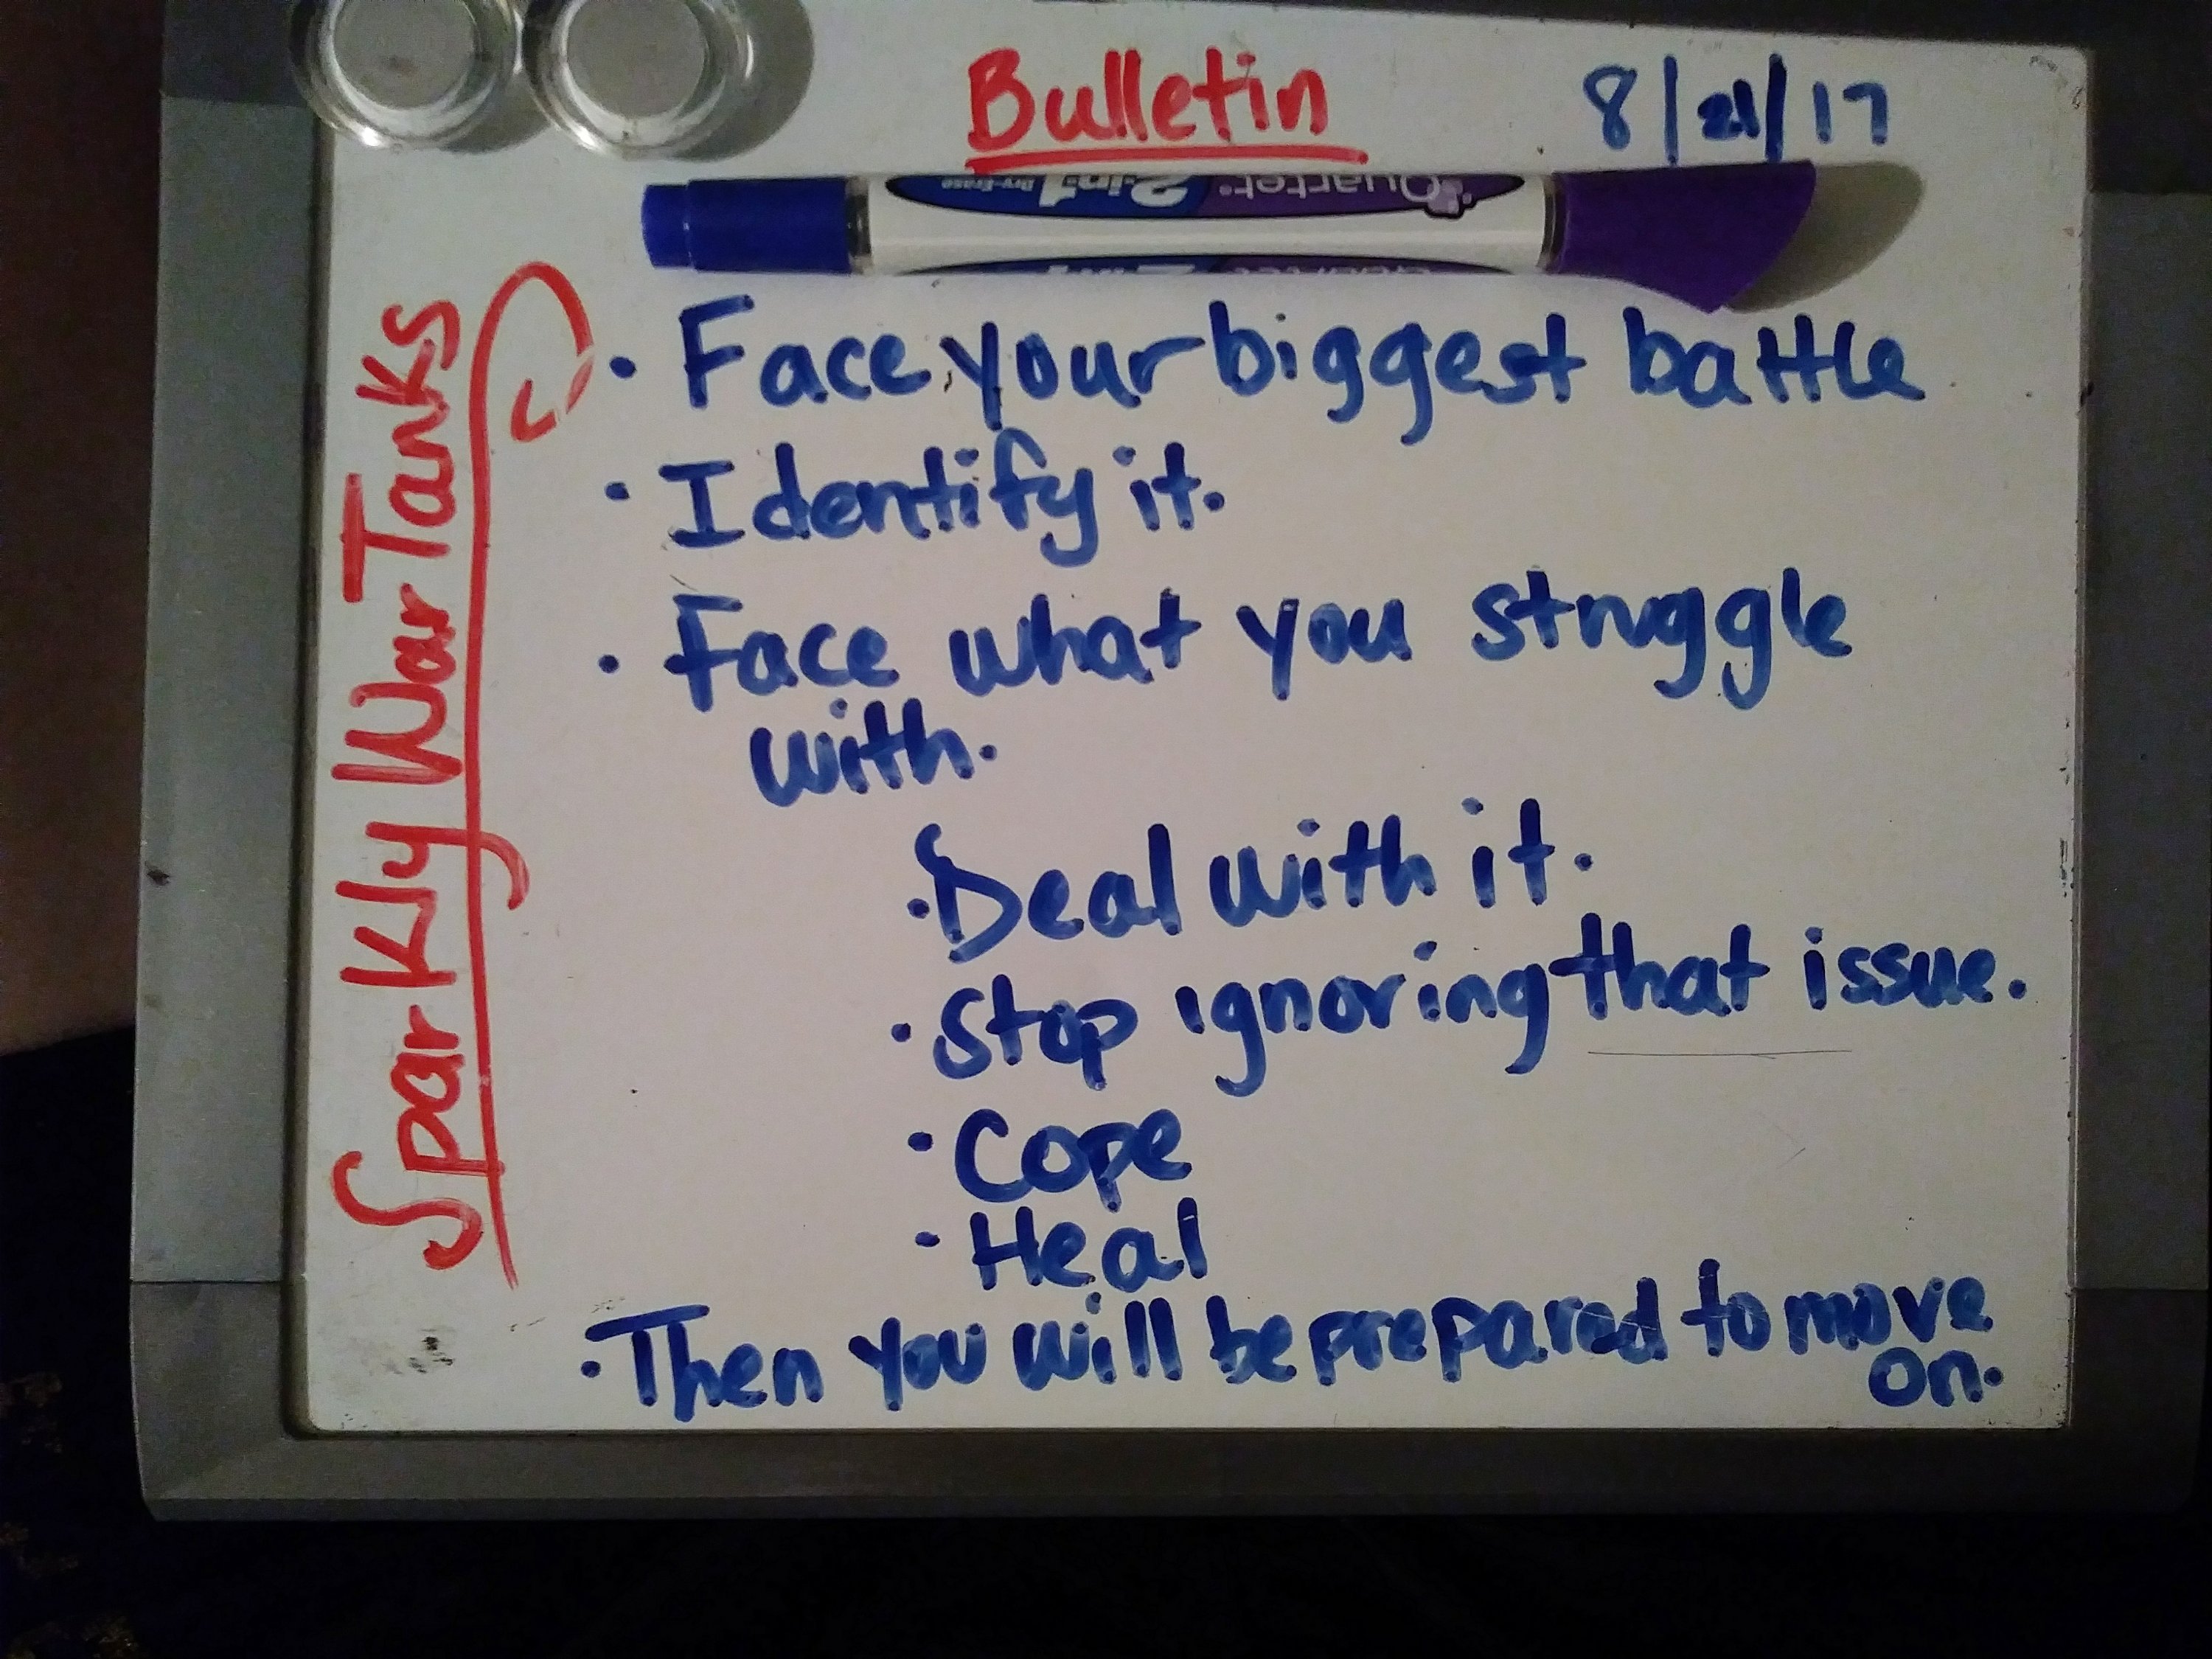 Bulletin
8/21/17
Quartet 2-in-1 Dry-Erase
Sparkly War Tanks
• Face your biggest battle
• Identify it.
• Face what you struggle
with.
• Deal with it.
• Stop ignoring that issue.
• Cope
• Heal
• Then you will be prepared to move
on.